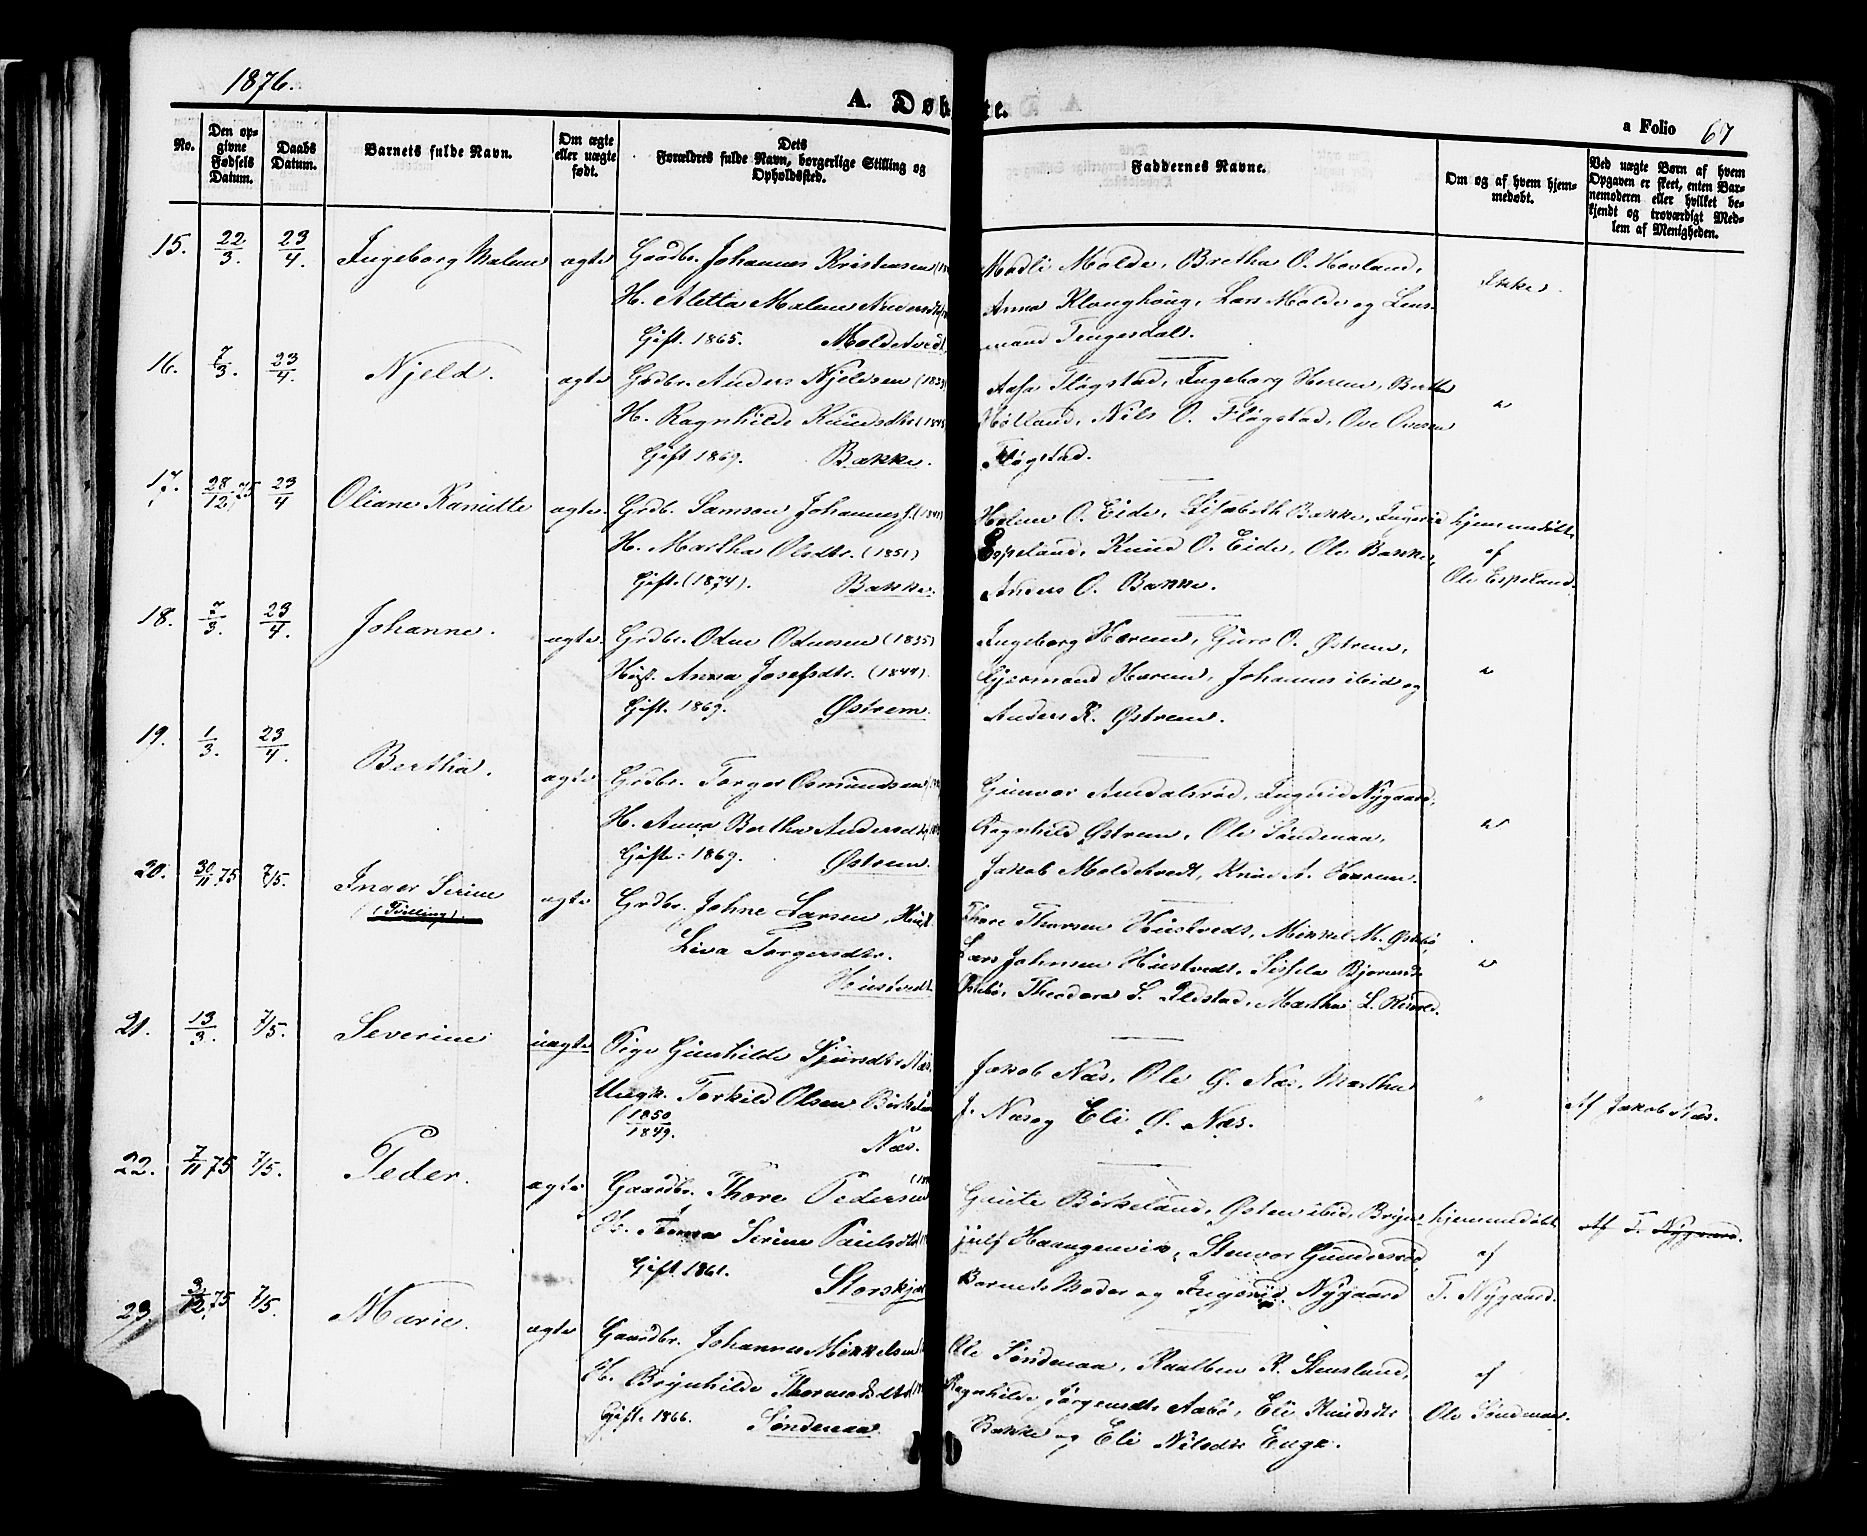 1876.
A. Døbte.
a Folio 67
No.
Den op-
givne
Fødsels
Datum.
Daabs
Datum.
Barnets fulde Navn.
Om ægte
eller uægte
født.
Dets
Forældres fulde Navn, borgerlige Stilling og
Opholdssted.
Faddernes Navne.
Om og af hvem hjem-
medøbt.
Ved uægte Børn af hvem
Opgaven er skeet, enten Bar-
nemoderen eller hvilket be-
kjendt og troværdigt Med-
lem af Menigheden.
15. 22/3. 23/4. Ingeborg Malene ægte Gaardbr. Johannes Kristensen
H. Aletta Malene
Gift. 1865. Moldetvedt
Madli Molde, Bretha O. Hovland,
Anna Klonghaug, Lars Molde og
Tengesdal.
Ikke.
16. 7/3. 23/4. Njeld. ægte Grdbr. Anders Njeldsen (1833)
H. Ragnhilde Knudsdtr
Gift 1869. Bakke.
Aasa Fløgstad, Ingeborg Herem, Berthe
Hølland, Nils O. Fløgstad, Ove Ovesen
Fløgstad.
"
17. 28/12 75 23/4 Oliane Kamitte ægte. Grdb. Samson Johannes.
H. Martha Olsdtr. (1851)
Gift. (1874). Bakke.
Helene O. Eide, Lisabeth Bakke, Ingerid
Espeland, Knud O. Eide, Ole Bakke,
Anders O. Bakke.
hjemmedøbt
af
Ole Espeland.
18. 7/3. 23/4. Johanne. ægte. Grdbr. Odne Odnesen (1835)
Hust. Anna Josefsdtr. (1844).
Gift. 1869. Østrem.
Ingeborg Hærem, Guro O. Østrem,
Gjermund Hærem, Johannes ibid og
Anders K. Østrem.
"
19. 1/3. 23/4. Bertha. ægte Grdbr. Torger Osmundsen
H. Anna Bertha Andersdtr
Gifte: 1869. Østrem.
Gunvor Amdalsrød, Ingerid Nygaard,
Ragnhild Østrem, Ole Søndenaa,
Jakob Moldetvedt, Knud A. Hærem.
"
20. 30/11 75 7/5. Inger Serine
(Tvilling) ægte Grdbr. Johne Larsen, Hust.
Liva Torgersdtr.
Hustvedt.
Thore Thorsen Hustvedt, Mikkel M. Østebø
Lars Johnsen Hustvedt, Sissela Bjørnsdtr
Østebø, Theodora S. Ilstad, Martha L.
"
21. 13/3. 7/5. Severine uægte Pige Gunhilde Sjursdtr Næs.
Ungk. Torkild Olsen Birkeland
(1850
1849.
Næs.
Jakob Næs, Ole G. Næs, Martha
J. Næs og Eli O. Næs.
"
Af Jakob Næs.
22. 7/11 75 7/5. Peder. ægte Gaardbr. Thore Pedersen
H. Anna Serine Paulsdtr
Gift. 1861. Storskjær
Gaute Birkeland, Østen ibid, Bryn-
julf Haaugenvik, Stenvor Gundersrød,
Barnets Moder og Ingerid Nygaard
hjemmedøbt
af
T. Nygaard.
Af T. Nygaard.
23. 3/12. 75 7/5. Marie. ægte Gaardbr. Johannes Mikkelsen
H. Brynhilde Thormodsdtr
Gift. 1866. Søndenaa
Ole Søndenaa, Kaalben K. Stensland,
Ragnhilde Torgersdtr Aabø, Eli Knudsdtr
Bakke og Eli Nilsdtr Enge.
af
Ole Søndenaa.